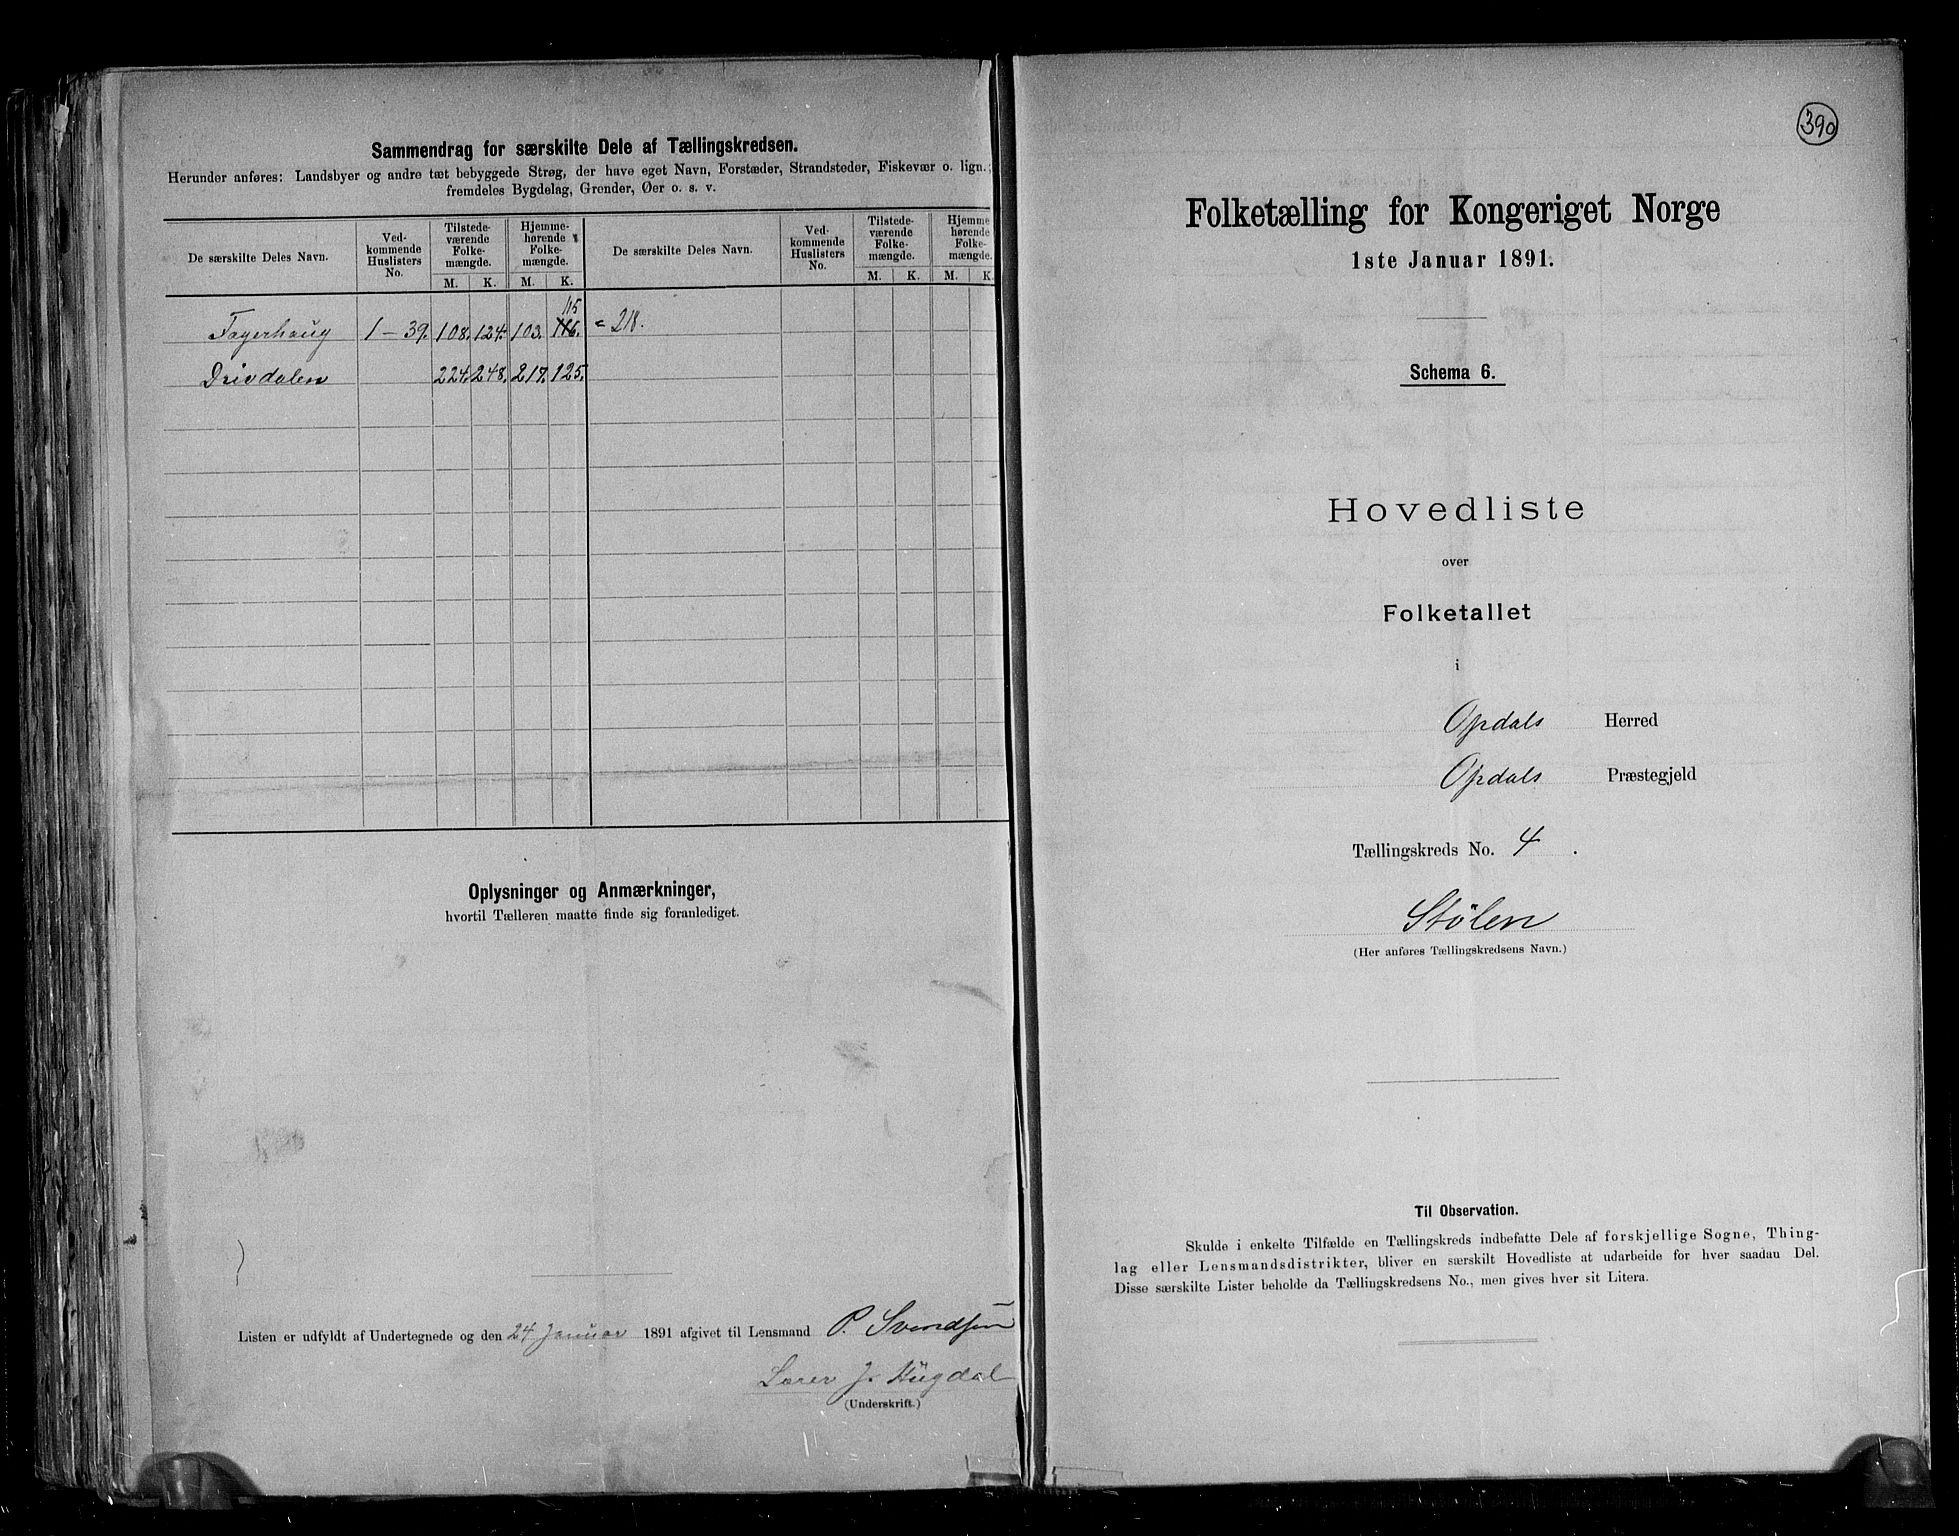 Sammendrag for særskilte Dele af Tællingskredsen.
Herunder anføres: Landsbyer og andre tæt bebyggede Strøg, der have eget Navn, Forstæder, Strandsteder, Fiskevær o. lign.;
fremdeles Bygdelag, Grender, Øer o. s. v.
De særskilte Deles Navn. Ved-kommende Huslisters No. Tilstede-værende Folke-mængde. Hjemme-hørende Folke-mængde. De særskilte Deles Navn. Ved-kommende Huslisters No. Tilstede-værende Folke-mængde. Hjemme-hørende Folke-mængde.
M. K. M. K. M. K. M. K.
115
Fagerhaug 1 - 39. 108. 124. 103. 116. = 218.
Drivdalen 224. 248. 217. 125.
Oplysninger og Anmærkninger,
hvortil Tælleren maatte finde sig foranlediget.
Listen er udfyldt af Undertegnede og den 24 Januar 1891 afgivet til Lensmand P. Svendsen
Lærer J. Hügdal
(Underskrift.)
390
Folketælling for Kongeriget Norge
1ste Januar 1891.
Schema 6.
Hovedliste
over
Folketallet
i
Opdals Herred
Opdals Præstegjeld
Tællingskreds No. 4.
Stølen
(Her anføres Tællingskredsens Navn.)
Til Observation.
Skulde i enkelte Tilfælde en Tællingskreds indbefatte Dele af forskjellige Sogne, Thing-
lag eller Lensmandsdistrikter, bliver en særskilt Hovedliste at udarbeide for hver saadan Del.
Disse særskilte Lister beholde da Tællingskredsens No., men gives hver sit Litera.